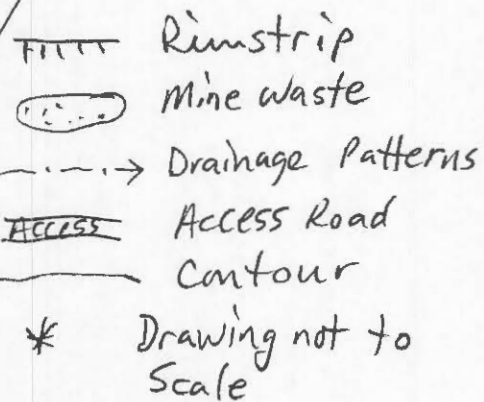 Rimstrip
Mine Waste
Drainage Patterns
ACCESS Access Road
Contour
* Drawing not to
Scale